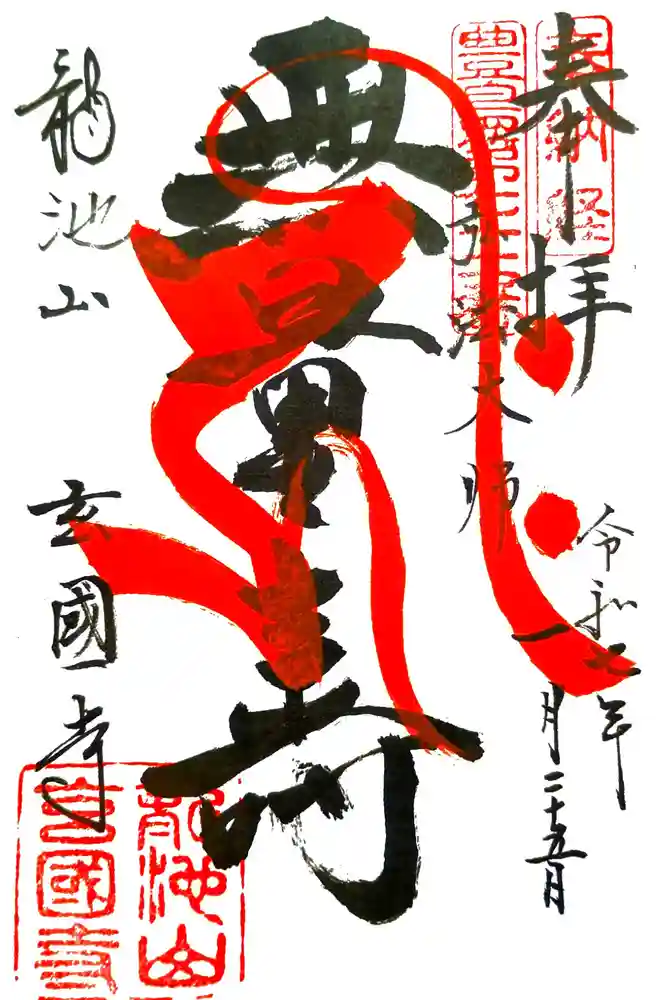 奉拝
奉納経
令和七年
一月二十五日
弘法大師
無量寿
龍池山
玄國寺
龍池山
玄國寺